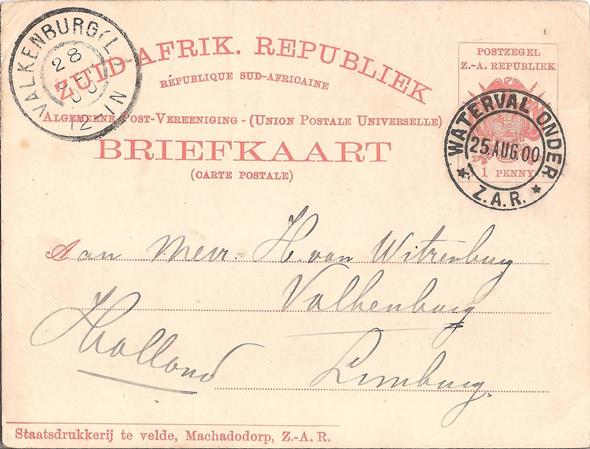 ZUID-AFRIK. REPUBLIEK
RÉPUBLIQUE SUD-AFRICAINE
ALGEMEENE POST-VEREENIGING - (UNION POSTALE UNIVERSELLE)
BRIEFKAART
(CARTE POSTALE)
POSTZEGEL
Z.-A. REPUBLIEK
1 PENNY
VALKENBURG (L
28
12
WATERVAL ONDER
25.AUG.00
Z.A.R.
Aan Mevr. H. van Witzenburg
Valkenburg
Holland Limburg.
Staatsdrukkerij te velde, Machadodorp, Z.-A. R.